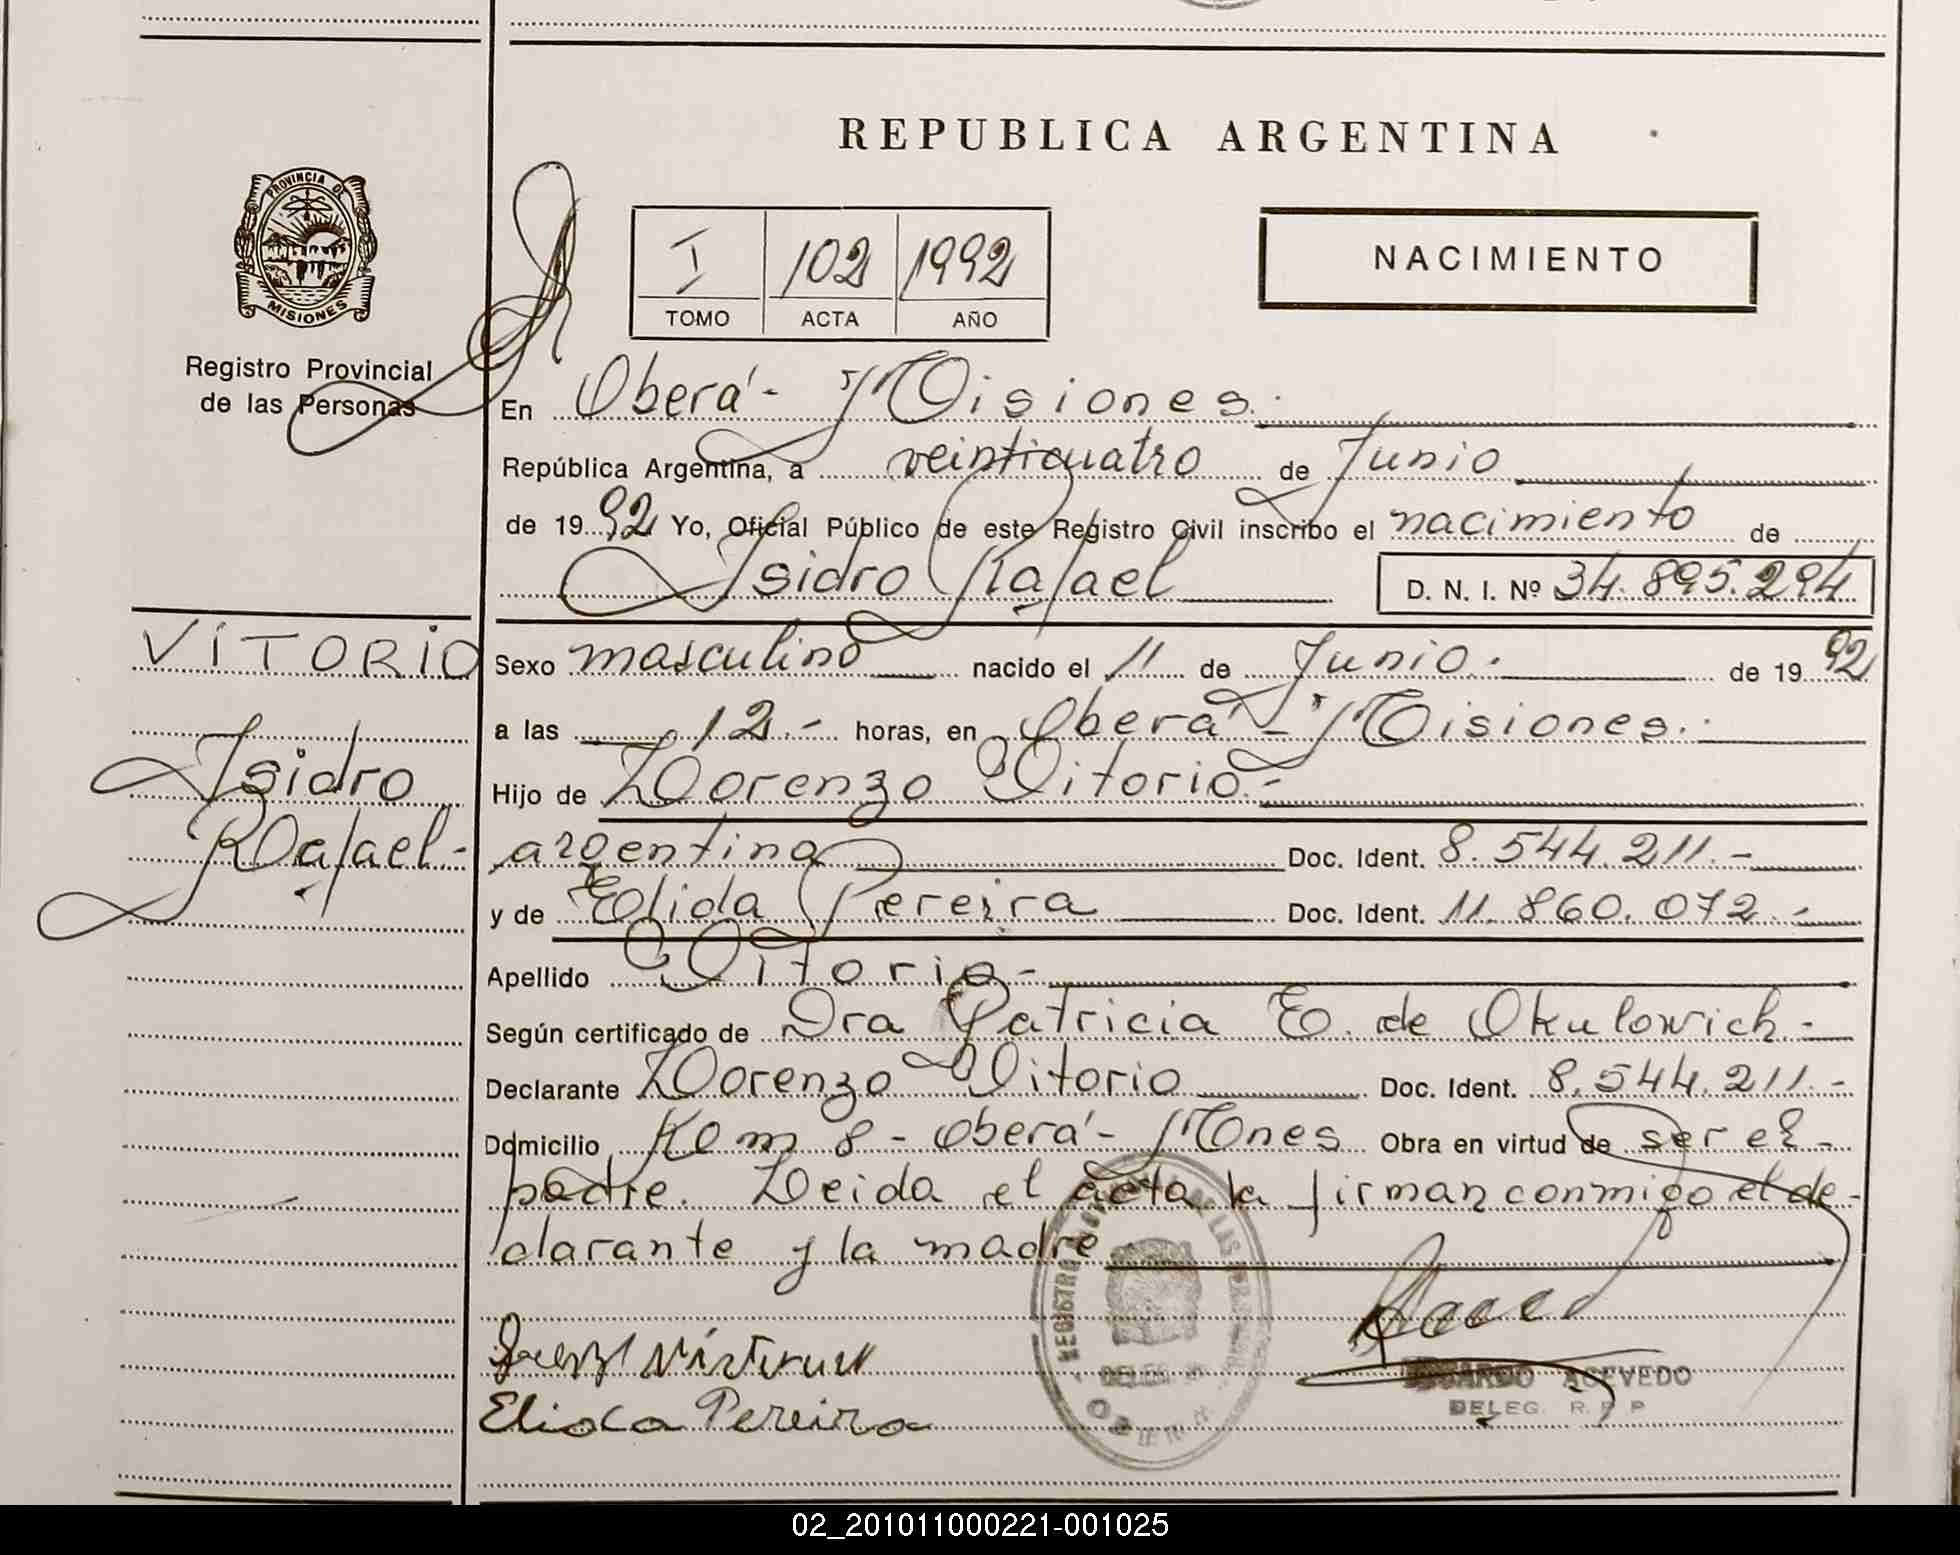 REPUBLICA ARGENTINA
PROVINCIA DE
MISIONES
Registro Provincial
de las Personas
I 102 1992
TOMO ACTA AÑO
NACIMIENTO
En Oberá - Misiones.
República Argentina, a veinticuatro de Junio
de 19 92 Yo, Oficial Público de este Registro Civil inscribo el nacimiento de
Isidro Rafael D. N. I. Nº 34.895.294
VITORIO
Isidro
Rafael.-
Sexo masculino nacido el 11 de Junio. de 19 92
a las 12.- horas, en Oberá - Misiones.
Hijo de Lorenzo Vitorio.-
argentino Doc. Ident. 8.544.211.-
y de Elida Pereira Doc. Ident. 11.860.072.-
Apellido Vitorio.-
Según certificado de Dra Patricia E. de Okulovich.-
Declarante Lorenzo Vitorio Doc. Ident. 8.544.211.-
Domicilio Km 8 - Oberá - Mnes Obra en virtud de ser el
padre. Leida el acta la firman conmigo el de-
clarante y la madre
REGISTRO DE LAS
DELEG
Elida Pereira
ACEVEDO
DELEG. R. P. P
02_201011000221-001025